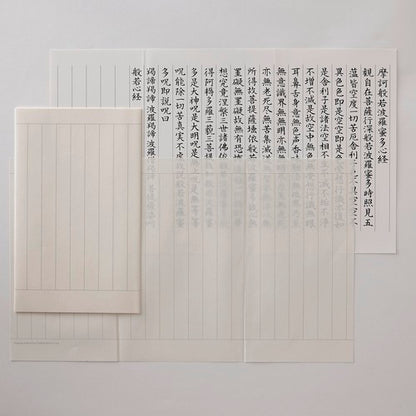 摩訶般若波羅蜜多心経
観自在菩薩行深般若波羅蜜多時照見五
蘊皆空度一切苦厄舎利子色不異空空不
異色色即是空空即是色受想行識亦復如
是舎利子是諸法空相不生不滅不垢不浄
不増不減是故空中無色
耳鼻舌身意無色声香味
無意識界無無明亦無無
亦無老死尽無苦集滅道
所得故菩提薩埵依般若
罣礙無罣礙故無有恐怖
想究竟涅槃三世諸仏依
得阿耨多羅三藐三菩提
多是大神呪是大明呪是無上呪是無等等
呪能除一切苦真実不虚故説般若波羅蜜
多呪即説呪曰
羯諦羯諦波羅羯諦波羅
般若心経